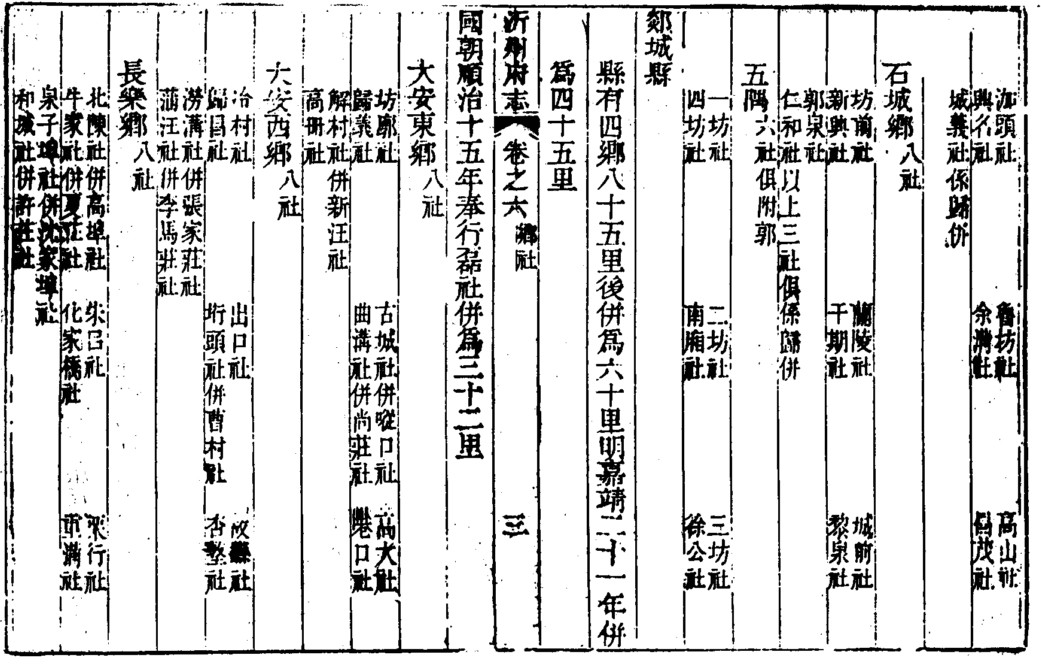 泇頭社　魯坊社　高山社
興名社　余溝社　昌茂社
城義社係歸併
石城鄉八社
坊前社　蘭陵社　城前社
新興社　千期社　黎泉社
郭泉社
仁和社以上三社俱係歸併
五隅六社俱附郭
一坊社　二坊社　三坊社
四坊社　南廂社　徐公社
郯城縣
縣有四鄉八十五里後併爲六十里明嘉靖二十一年併
爲四十五里
沂州府志　卷之六　鄉社　三
國朝順治十五年奉行磊社併爲三十二里
大安東鄉八社
坊廓社　古城社併㙡口社　高大社
歸義社　曲溝社併尚莊社　壠口社
解村社併新汪社
高冊社
大安西鄉八社
冶村社　出口社　故縣社
歸昌社　垳頭社併曹村社　杏墊社
澇溝社併張家莊社
蒲汪社併李馬莊社
長樂鄉八社
北陳社併高埠社　朱呂社　梁行社
牛家社併夏莊社　化家橋社　重溝社
泉子埠社併沈家埠社
和城社併許莊社